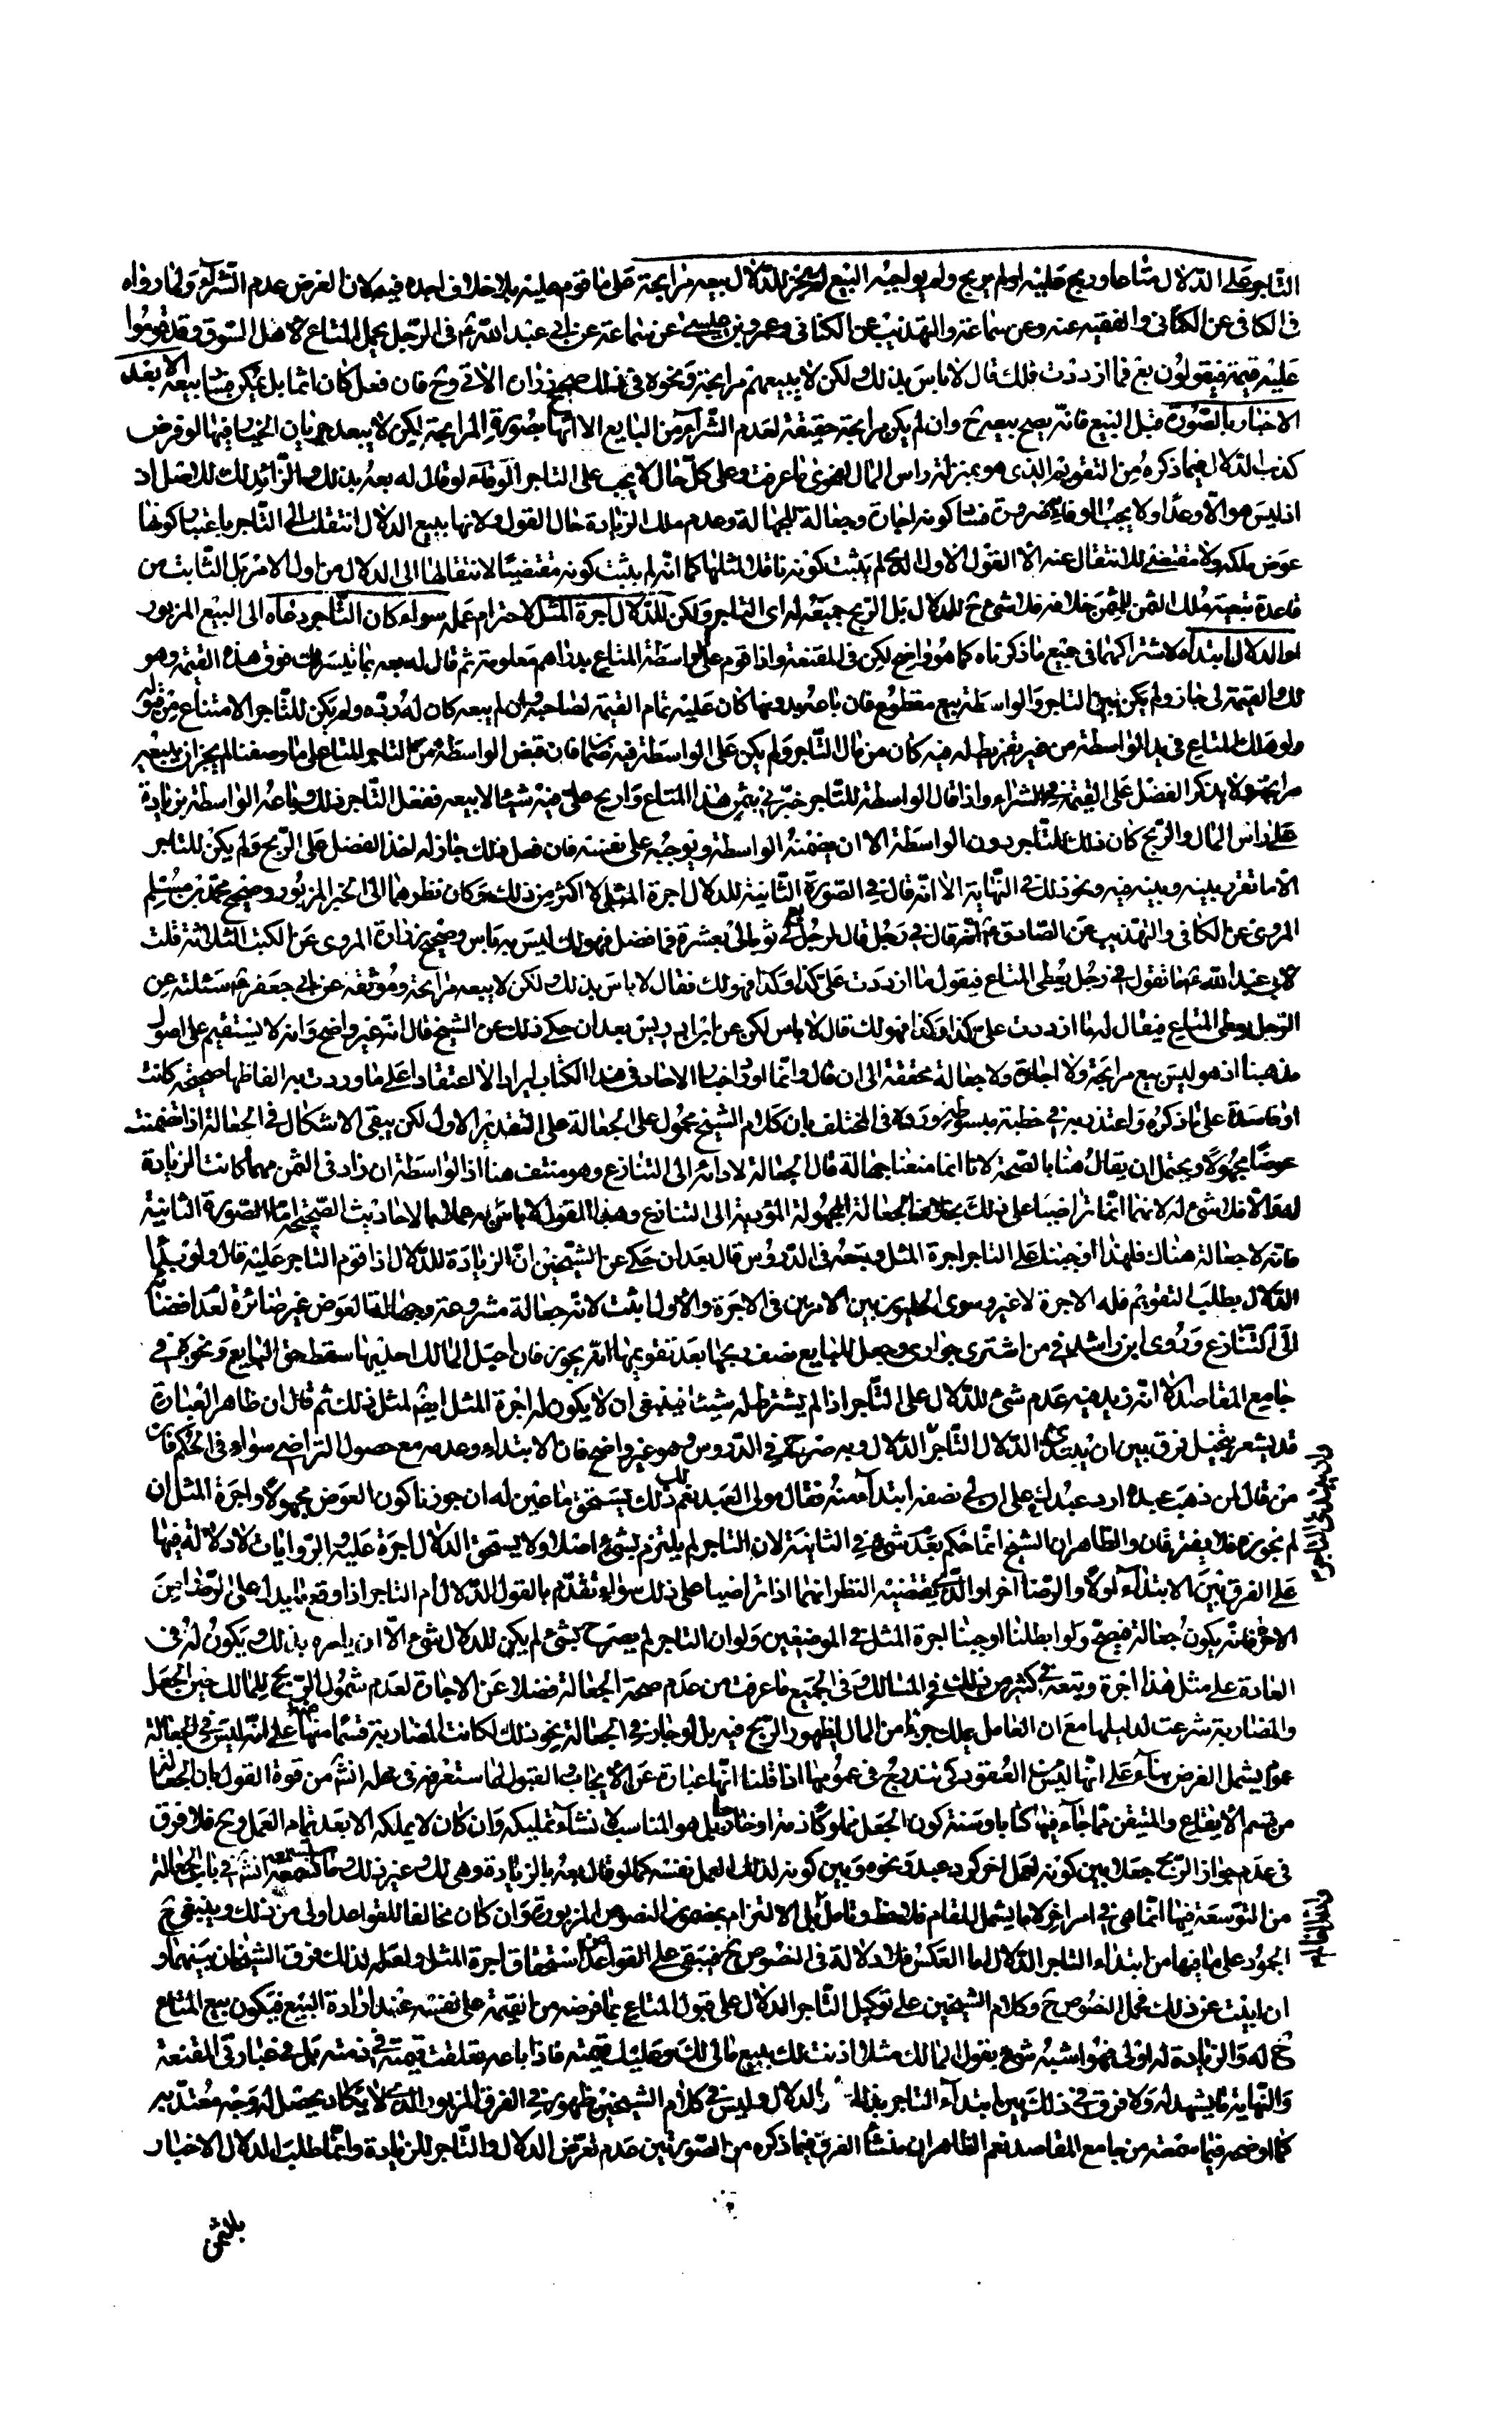 التاجر على الدلال متاعا وربح عليه او لم يربح ولم يواجبه البيع لم يجز للدلال بيعه مرابحة على ما قوم عليه بلا خلاف اجده فيه لان الفرض عدم الشراء ولما رواه
فى الكافى عن الكنانى والفقيه عنه وعن سماعة والتهذيب عن الكنانى وعن سماعة عن ابى عبد الله ع فى الرجل يحمل المتاع لاهل السوق وقد قوموا
عليه قيمة فيقولون بع فما ازددت فلك قال لا باس بذلك ولكن لا يبيعهم مرابحة ونحوه فى ذلك صحيح زرارة الاتى وح فان فعل كان اثما بل يمكن بيعه الا بعد
الاخبار بالصورة قبل البيع فانه يصح بيعه ح وان لم يكن مرابحة حقيقة لعدم الشراء من البايع الا انها بصورة المرابحة لكن لا يبعد جريان الخيار فيها لو فرض
كذب الدلال فيما ذكره من التقويم الذى هو بمنزلة راس المال لفحوى ما عرفت وعلى كل حال لا يجب على التاجر الوفاء لو قال له بعه بذلك والزائد لك للاصل
اذ ليس هو الا وعدا ولا يجب الوفاء به ضرورة فساد كونه اجارة وجعالة للجهالة وعدم ملك الزيادة حال القول ولانها ببيع الدلال انتقلت الى التاجر باعتبار كونها
عوض ملكه ولا مقتضى للانتقال عنه الا القول الاول الذى لم يثبت كونه ناقلا لمثلها كما انه لم يثبت كونه مقتضيا لانتقالها الى الدلال من اول الامر بل الثابت من
قاعدة تبعية ملك الثمن للمثمن خلافه فلا شىء ح للدلال بل الربح جميعه له اى التاجر ولكن للدلال اجرة المثل لاحترام عمله سواء كان التاجر دعاه الى البيع المزبور
او الدلال ابتداه لاشتراكهما فى جميع ما ذكرناه كما هو واضح لكن فى المقنعة واذا قوم على الواسطة المتاع بدراهم معلومة ثم قال له بعه بما تيسر لك فوق هذه القيمة وهو
لك والقيمة لى جاز ولم يكن بين التاجر والواسطة بيع مقطوع فان باعه بدونها كان عليه تمام القيمة لصاحبه وان لم يبعه كان له رده ولم يكن للتاجر الامتناع من قبوله
ولو هلك المتاع فى يد الواسطة من غير تفريط له فيه كان من مال التاجر ولم يكن على الواسطة فيه ضمان فان قبض الواسطة من التاجر المتاع على ما وصفنا لم يجز ان يبيعه
مرابحة ولا يذكر الفضل على القيمة فى الشراء واذا قال الواسطة للتاجر خبرنى بثمن هذا المتاع واربح على فيه شيئا لابيعه ففعل التاجر ذلك وباعه الواسطة بزيادة
على راس المال والربح كان ذلك للتاجر دون الواسطة الا ان يضمنه الواسطة ويوجبه على نفسه فان فعل ذلك جاز له اخذ الفضل على الربح ولم يكن للتاجر
الا ما تقرر بينه وبينه فيه ونحو ذلك فى النهاية الا انه قال فى الصورة الثانية للدلال اجرة المثل لا اكثر من ذلك وكان نظرهما الى الخبر المزبور وصحيح محمد بن مسلم
المروى عن الكافى والتهذيب عن الصادق ع انه قال فى رجل قال لرجل بع ثوبى بعشرة فما فضل فهو لك ليس به باس وصحيح زرارة المروى عن الكتب الثلاثة قلت
لابى عبد الله ع ما تقول فى رجل يعطى المتاع فيقول ما ازددت على كذا وكذا فهو لك فقال لا باس بذلك ولكن لا يبيعه مرابحة وموثقه عن ابى جعفر ع سئلته عن
الرجل يعطى المتاع فيقال له ما ازددت على كذا وكذا فهو لك قال لا باس لكن عن ابن ادريس بعد ان حكى ذلك عن الشيخ قال انه غير واضح وانه لا يستقيم على اصول
مذهبنا اذ هو ليس بيع مرابحة ولا اجارة ولا جعالة محققة الى ان قال وانما اورد اخبار الاحاد فى هذا الكتاب ايرادا لا اعتقادا على ما وردت به الفاظها صحيحة كانت
او فاسدة على ما ذكره واعتذر به فى خطبة مبسوطه ورده فى المختلف بان كلام الشيخ محمول على الجعالة على التقدير الاول لكن يبقى الاشكال فى الجعالة اذا تضمنت
عوضا مجهولا ويحتمل ان يقال هنا بالصحة لانا انما منعنا جهالة مال الجعالة لادائه الى التنازع وهو منتف هنا اذ الواسطة ان زاد فى الثمن مهما كانت الزيادة
له والا فلا شىء له لانهما انما تراضيا على ذلك بخلاف الجعالة المجهولة المؤدية الى التنازع وهذا القول لا باس به عملا بالاحاديث الصحيحة اما الصورة الثانية
فانه لا جعالة هناك فلهذا اوجبنا على التاجر اجرة المثل وتبعه فى الدروس قال بعد ان حكى عن الشيخين ان الزيادة للدلال اذا قوم التاجر عليه قال ولو بدا
الدلال بطلب التقويم فله الاجرة لا غير وسوى الحليون بين الامرين فى الاجرة والاول اثبت لانه جعالة مشروعة وجهالة العوض غير ضائرة لعدم افضائه
الى التنازع وروى ابن راشد فى من اشترى جوارى وجعل للبايع نصف ربحها بعد تقويمها انه يجوز فان احبل المالك احديها سقط حق البايع ونحوه فى
جامع المقاصد الا انه زيد فيه عدم شىء للدلال على التاجر اذا لم يشترط له شيئا فينبغى ان لا يكون له اجرة المثل ايضا لمثل ذلك ثم قال ان ظاهر العبارة
قد يشعر بتخيل فرق بين ان يبتدى الدلال التاجر الدلال وبه صرح فى الدروس وهو غير واضح فان الابتداء وعدمه مع حصول التراضى سواء فى الحكم فان
من قال لمن ذهب عبده ارد عبدك على ان لى نصفه ابتداء منه فقال مولى العبد نعم ذلك لك يستحق ما عين له ان جوزنا كون العوض مجهولا واجرة المثل ان
لم نجوزه فلا يفترقان والظاهر ان الشيخ انما حكم بعدم شىء فى الثانية لان التاجر لم يلتزم بشىء اصلا ولا يستحق الدلال اجرة عليه والروايات لا دلالة فيها
على الفرق بين الابتداء اولا والرضا اخرا والذى يقتضيه النظر انهما اذا تراضيا على ذلك سواء تقدم بالقول الدلال ام التاجر اذا وقع ما يدل على الرضا من
الاخر فانه يكون جعالة فيصح ولو ابطلنا اوجبنا اجرة المثل فى الموضعين ولو ان التاجر لم يصرح بشىء لم يكن للدلال شىء الا ان يامره بذلك ويكون له فى
العادة على مثل هذا اجرة وتبعه فى كثير من ذلك فى المسالك وفى الجميع ما عرفت من عدم صحة الجعالة فضلا عن الاجارة لعدم شمول الربح للمالك حين الجعل
والمضاربة شرعت لدليلها مع ان العامل يملك جزءا من المال لظهور الربح فيه بل لو جاز فى الجعالة نحو ذلك لكانت المضاربة قسما منها على انه ليس فى الجعالة
عموم يشمل الفرض بناء على انها ليست من العقود كى تندرج فى عمومها اذا قلنا انها عبارة عن الايجاب والقبول لما ستعرف فى محله انش من قوة القول بان الجعالة
من قسم الايقاع والمتيقن مما جاء فيها كتابا وسنة كون الجعل مملوكا ذمة او خارجا بل هو المناسب لانشاء تمليكه وان كان لا يملكه الا بعد تمام العمل وح فلا فرق
فى عدم جواز الربح جعلا بين كونه لعمل اخر كرد عبد ونحوه وبين كونه لذلك العمل نفسه كما لو قال بعه بالزيادة وهى لك وغير ذلك وما تسمعه انش فى باب الجعالة
من التوسعة فيها انما هى فى امر اخر لا ما يشمل المقام فلاحظ وتامل بل الالتزام بخصوص النصوص المزبورة وان كان مخالفا للقواعد اولى من ذلك وينبغى ح
الجمود على ما فيها من ابتداء التاجر الدلال اما العكس فلا دلالة فى النصوص ح فيبقى على القواعد من استحقاق اجرة المثل ولعله لذلك فرق الشيخان بينهما و
ان ابيت عن ذلك فحمل النصوص ح وكلام الشيخين على توكيل التاجر الدلال على قبول المتاع بما فرضه من القيمة على نفسه عند ارادة البيع فيكون بيع المتاع
ح له والزيادة له اولى فهو اشبه شىء بقول المالك مثلا اذنت لك ببيع مالى لك وعليك قيمته فاذا باعه تعلقت قيمته فى ذمته بل فى عبارتى المقنعة
والنهاية ما يشهد له ولا فرق فى ذلك بين ابتداء التاجر بذلك والدلال وليس فى كلام الشيخين ظهور فى الفرق المزبور الذى لا يكاد يحصل له وجه معتد به
كما اوضحه فيما سمعته من جامع المقاصد نعم الظاهر ان منشأ الفرق فيما ذكره من الصورتين عدم تعرض الدلال والتاجر للزيادة وانما طلب الدلال الاخبار
بالثمن